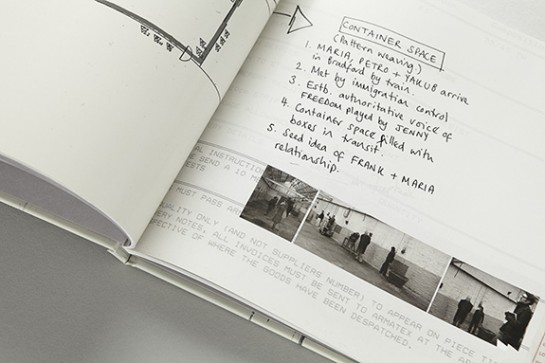 CONTAINER SPACE
(Pattern weaving)
1. MARIA, PETRO + YAKUB arrive
in Bradford by train.
2. Met by immigration control
3. Estb. authoritative voice of
FREEDOM played by JENNY
4. Container space filled with
boxes in transit.
5. Seed idea of FRANK + MARIA
relationship.
AL INSTRUCTION
SEND A 10 M
ESTS
MUST PASS AR
QUALITY ONLY (AND NOT SUPPLIERS NUMBER) TO APPEAR ON PIECE TI
ERY NOTES, ALL INVOICES MUST BE SENT TO ARMATEX AT THE AD
SPECTIVE OF WHERE THE GOODS HAVE BEEN DESPATCHED.